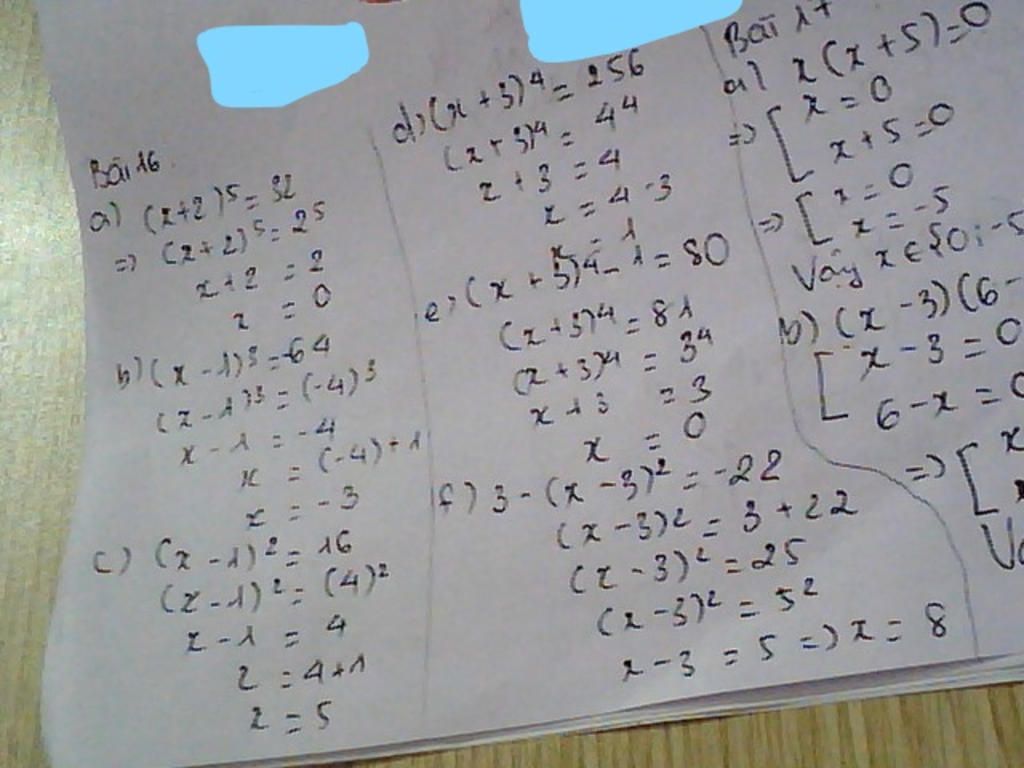 Bài 16.
a) (x+2)⁵ = 32
=> (x+2)⁵ = 2⁵
x+2 = 2
x = 0
b) (x-1)³ = -64
(x-1)³ = (-4)³
x-1 = -4
x = (-4)+1
x = -3
c) (x-1)² = 16
(x-1)² = (4)²
x-1 = 4
x = 4+1
x = 5
d) (x+3)⁴ = 256
(x+3)⁴ = 4⁴
x+3 = 4
x = 4-3
x = 1
e) (x+3)⁴ - 1 = 80
(x+3)⁴ = 81
(x+3)⁴ = 3⁴
x+3 = 3
x = 0
f) 3-(x-3)² = -22
(x-3)² = 3+22
(x-3)² = 25
(x-3)² = 5²
x-3 = 5 => x = 8
Bài 17
a) x(x+5)=0
=> [ x = 0
x+5 = 0
=> [ x = 0
x = -5
Vậy x ∈ {0; -5
b) (x-3)(6-
[ x-3 = 0
6-x = 0
=> [ x